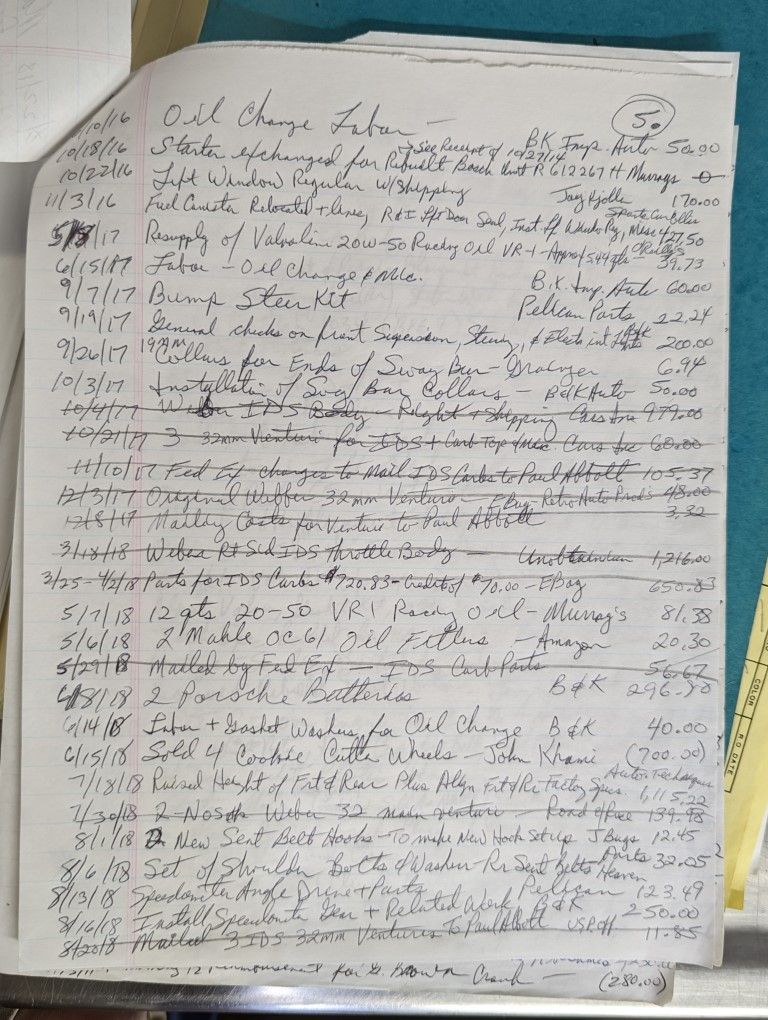 5.
10/16 Oil Change Labor — B.K. Imp. Auto 50.00
→ See Receipt of 10/27/14
10/18/16 Starter exchanged for Rebuilt Bosch Unit R612267H Murrays 0
10/22/16 Left Window Regular w/Shipping Joey Hjolle 170.00
11/3/16 Fuel Canister Relocated + lines, R&I Lft Door Seal, Inst. Lf Window Reg, Misc 427.50
5/8/17 Resupply of Valvoline 20W-50 Racing Oil VR-1 - O'Reilly's 39.73
6/15/17 Labor - Oil Change & Misc. B.K. Imp. Auto 60.00
9/7/17 Bump Steer Kit Pelican Parts 22.24
9/19/17 General checks on front Supension, Steering, & Elects int Lights B&K 200.00
9/26/17 19MM Collars for Ends of Sway Bar - Grainger 6.94
10/3/17 Installation of Sway Bar Collars - B&K Auto 50.00
10/4/17 Weber IDS Body - Right + Shipping Cars Inc 979.00
10/21/17 3 32mm Venturi for IDS + Carb Top & Misc. Cars Inc 60.00
11/10/17 Fed Ex charges to Mail IDS Carbs to Paul Abbott 105.37
12/3/17 Original Webber 32mm Venturi - EBay Retro Auto Prod's 48.00
12/8/17 Mailing Costs for Venturi to Paul Abbott 3.32
3/18/18 Weber Rt Sid IDS Throttle Body — Unobtainium 1,216.00
3/25-4/2/18 Parts for IDS Carbs $720.83 - Credit of $70.00 - EBay 650.83
5/7/18 12 qts 20-50 VR1 Racing Oil - Murray's 81.38
5/6/18 2 Mahle OC61 Oil Filters - Amazon 20.30
5/29/18 Mailed by Fed Ex — IDS Carb Parts 56.67
6/8/18 2 Porsche Batteries B&K 296.80
6/14/18 Labor + Gasket Washers for Oil Change B&K 40.00
6/15/18 Sold 4 Cookie Cutter Wheels - John Khami (700.00)
7/18/18 Raised Height of Frt & Rear Plus Align Frt & Rr Factory Spec. 1,115.22
7/30/18 2 - Nos Weber 32 main venturi - Road & Race 139.98
8/1/18 2 New Seat Belt Hooks - To make New Hook Setup J Bugs 12.45
8/6/18 Set of Shoulder Bolts & Washer - Rr Seat Belts Parts Heaven 32.05
8/13/18 Speedometer Angle Drive + Parts Pelican 123.49
8/16/18 Install Speedometer Gear + Related Work, B&K 250.00
8/20/18 Mailed 3 IDS 32mm Venturies To Paul Abbott US P.Off. 11.85
for G. Brown Crank — (280.00)
COLOR
R.O. DATE